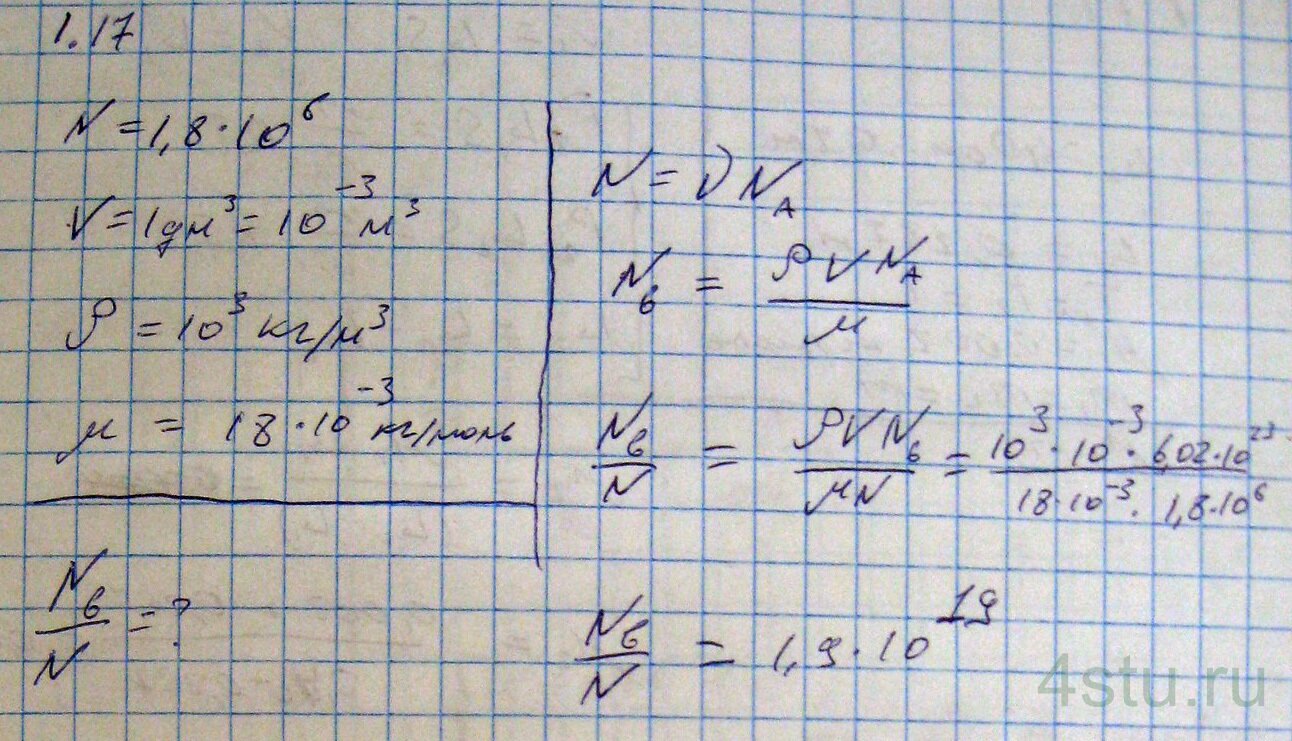 1.17
N = 1,8·10⁶
V = 1дм³ = 10⁻³ м³
ρ = 10³ кг/м³
μ = 18·10⁻³ кг/моль
Nв/N = ?
N = ν N_A
Nв = ρ V N_A / μ
Nв/N = ρ V Nв / μN = 10³·10⁻³·6,02·10²³ / 18·10⁻³·1,8·10⁶
Nв/N = 1,9·10¹⁹
4stu.ru